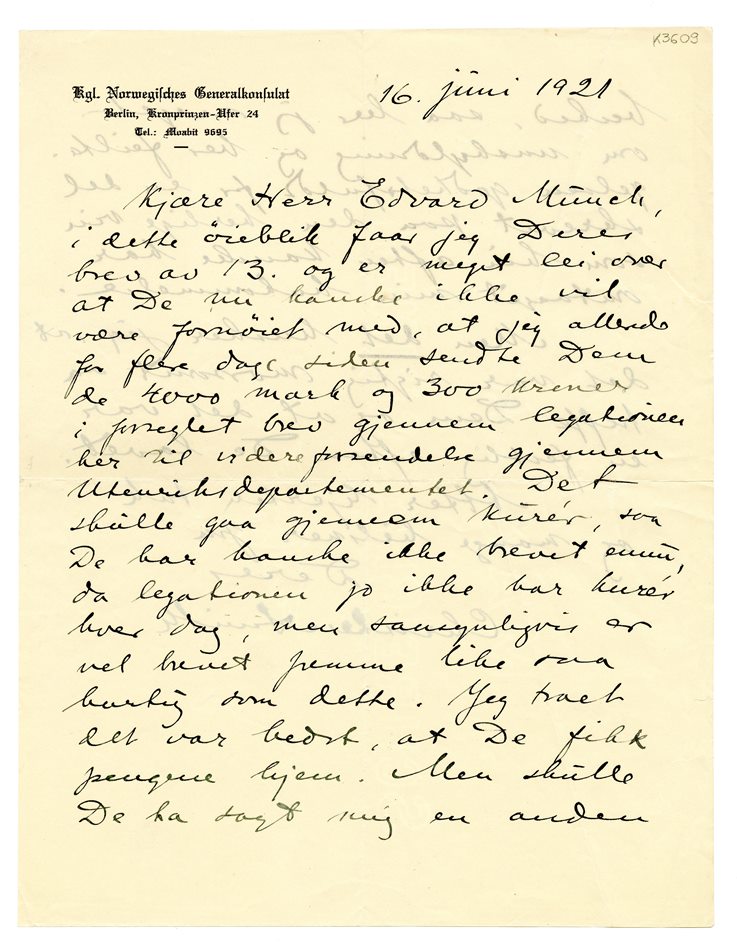 K3609
Kgl. Norwegisches Generalkonsulat
Berlin, Kronprinzen-Ufer 24
Tel.: Moabit 9695
16. juni 1921
Kjære Herr Edvard Munch,
i dette øieblik faar jeg Deres
brev av 13. og er meget lei over
at De nu kanske ikke vil
være fornøiet med, at jeg allerede
for flere dage siden sendte Dem
de 4000 mark og 300 kroner
i forseglet brev gjennem legationen
her til videreforsendelse gjennem
Utenriksdepartementet. Det
skulle gaa gjennem kurér, saa
De har kanske ikke brevet ennu,
da legationen jo ikke har kurér
hver dag, men sansynligvis er
vel brevet fremme like saa
hurtig som dette. Jeg troet
det var bedst, at De fikk
pengene hjem. Men skulle
De ha sagt mig en anden